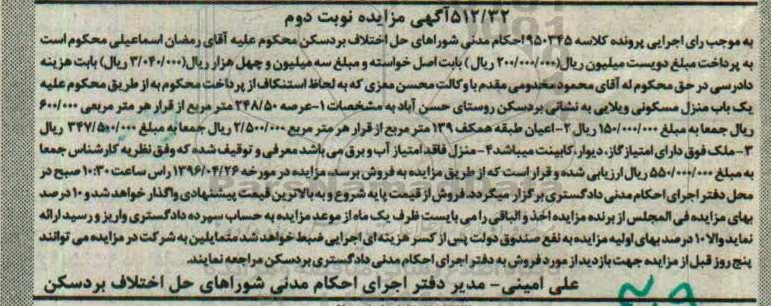 ۵۱۲/۳۲آگهی مزایده نوبت دوم
به موجب رای اجرایی پرونده کلاسه ۹۵۰۳۴۵احکام مدنی شوراهای حل اختلاف بردسکن محکوم علیه آقای رمضان اسماعیلی محکوم است
به پرداخت مبلغ دویست میلیون ریال(۲۰۰/۰۰۰/۰۰۰ ریال) بابت اصل خواسته و مبلغ سه میلیون و چهل هزار ریال(۳/۰۴۰/۰۰۰ ریال) بابت هزینه
دادرسی در حق محکوم له آقای محمود مخدومی مقدم با وکالت محسن معزی که به لحاظ استنکاف از پرداخت محکوم به از طریق محکوم علیه
یک باب منزل مسکونی ویلایی به نشانی بردسکن روستای حسن آباد به مشخصات ۱-عرصه ۲۴۸/۵۰ متر مربع از قرار هر متر مربعی ۶۰۰/۰۰۰
ریال جمعا به مبلغ ۱۵۰/۰۰۰/۰۰۰ ریال ۲-اعیان طبقه همکف ۱۳۹ متر مربع از قرار هر متر مربع ۲/۵۰۰/۰۰۰ ریال جمعا به مبلغ ۳۴۷/۵۰۰/۰۰۰ ریال
۳-ملک فوق دارای امتیاز گاز، دیوار، کابینت میباشد ۴-منزل فاقد امتیاز آب و برق می باشد معرفی و توقیف شده که وفق نظریه کارشناس جمعا
به مبلغ ۵۵۰/۰۰۰/۰۰۰ ریال ارزیابی شده و قرار است که از طریق مزایده به فروش برسد، مزایده در مورخه ۱۳۹۶/۰۴/۲۶ راس ساعت ۱۰:۳۰ صبح در
محل دفتر اجرای احکام مدنی دادگستری برگزار میگردد. فروش از قیمت پایه شروع و به بالاترین قیمت پیشنهادی واگذار خواهد شد و ۱۰ درصد
بهای مزایده فی المجلس از برنده مزایده اخذ و الباقی را می بایست ظرف یک ماه از موعد مزایده به حساب سپرده دادگستری واریز و رسید ارائه
نماید والا ۱۰ درصد بهای اولیه مزایده به نفع صندوق دولت پس از کسر هزینه ای اجرایی ضبط خواهد شد متمایلین به شرکت در مزایده می توانند
پنج روز قبل از مزایده جهت بازدید از مورد فروش به دفتر اجرای احکام مدنی دادگستری بردسکن مراجعه نمایند.
علی امینی- مدیر دفتر اجرای احکام مدنی شوراهای حل اختلاف بردسکن